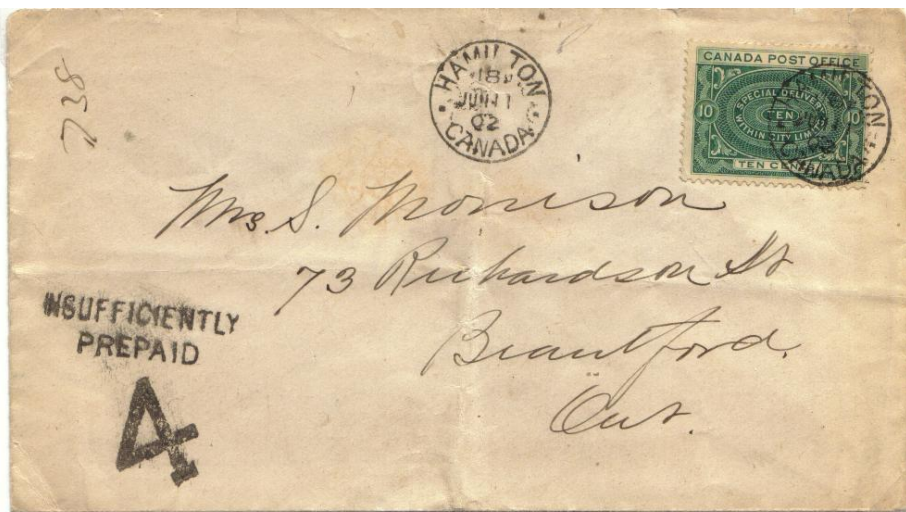 738
HAMILTON
JUN 11
02
CANADA
CANADA POST OFFICE
SPECIAL DELIVERY
10 TEN 10
WITHIN CITY LIMITS
TEN CENTS
HAMILTON
CANADA
Mrs. S. Morrison
73 Richardson St
Brantford.
Ont.
INSUFFICIENTLY
PREPAID
4